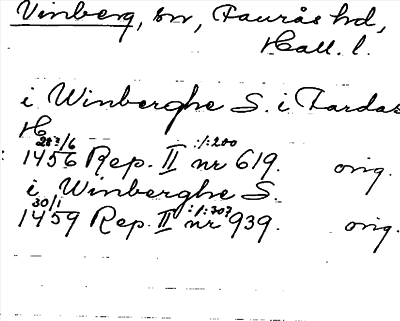 Vinberg, sn, Faurås hd,
Hall. l.
i Winberghe S. i Fardas
H
28?/6 :/:200
1456 Rep. II nr 619. orig.
i Winberghe S.
30/1 :/:303
1459 Rep. II nr 939. orig.